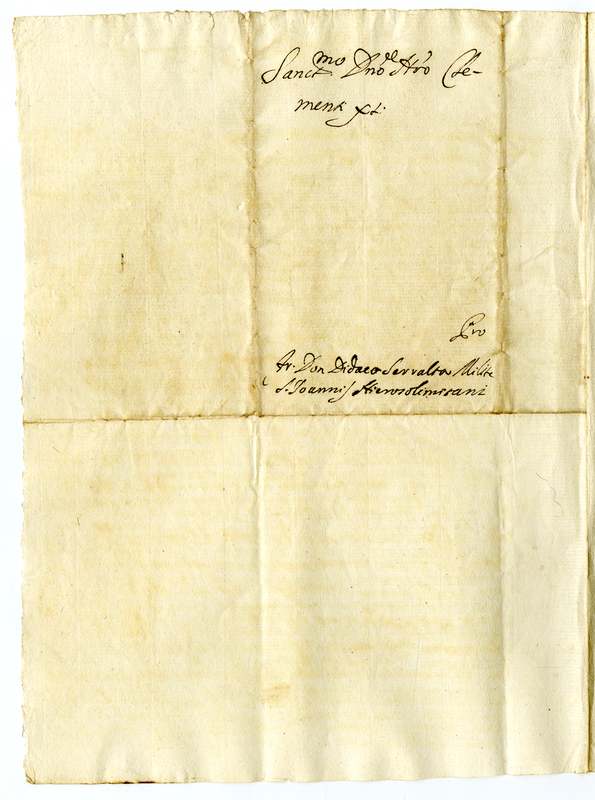 Sanct.mo Dno Nro Cle-
menti XI.
Pro
Fr. Don Didaco Serralta Milite
S. Joannis Hierosolimitani